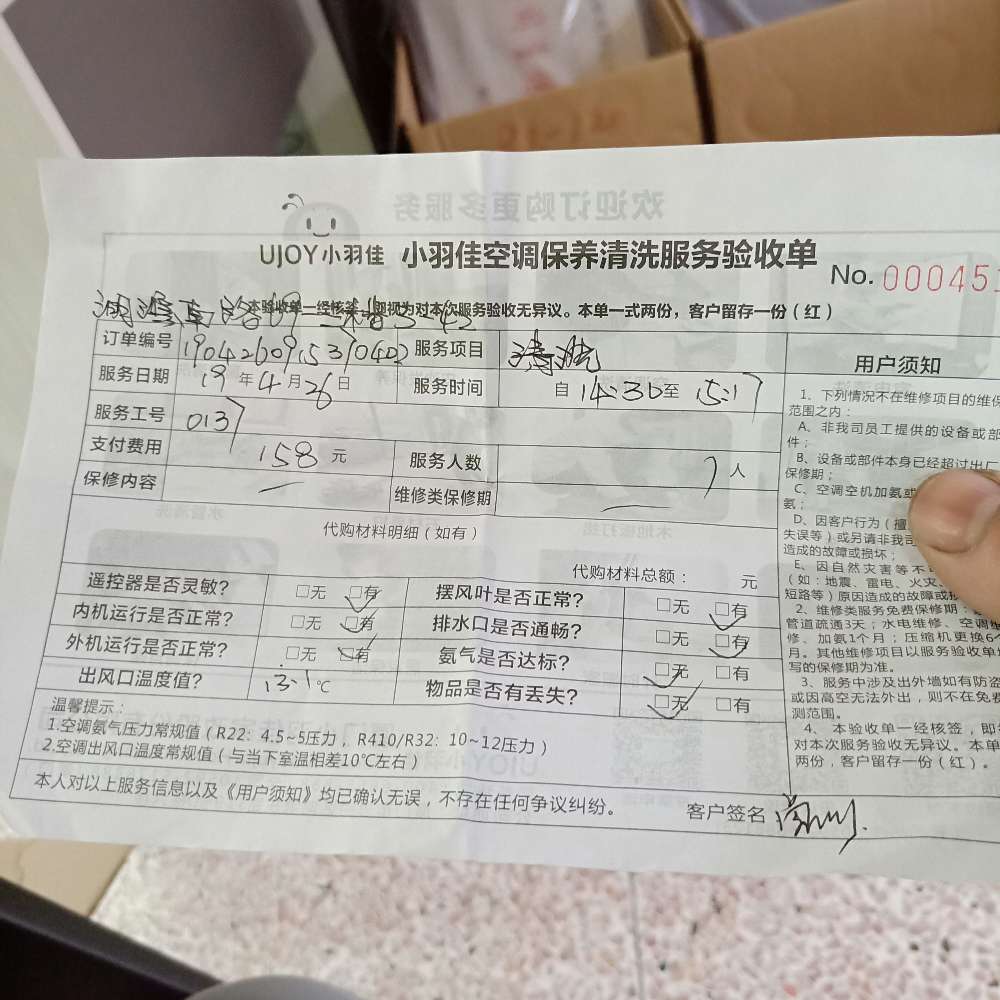 欢迎订购更多服务
UJOY小羽佳 小羽佳空调保养清洗服务验收单
No. 000451
本验收单一经核签，即视为对本次服务验收无异议。本单一式两份，客户留存一份（红）
订单编号 1904260915370402 服务项目 清洗
服务日期 19年4月26日 服务时间 自14:30至15:17
服务工号 0137
支付费用 158元 服务人数 1人
保修内容 — 维修类保修期 —
代购材料明细（如有）
代购材料总额： 元
遥控器是否灵敏? □无 □有 摆风叶是否正常? □无 □有
内机运行是否正常? □无 □有 排水口是否通畅? □无 □有
外机运行是否正常? □无 □有 氨气是否达标? □无 □有
出风口温度值? 13.1℃ 物品是否有丢失? □无 □有
温馨提示：
1.空调氨气压力常规值（R22: 4.5~5压力，R410/R32: 10~12压力）
2.空调出风口温度常规值（与当下室温相差10℃左右）
本人对以上服务信息以及《用户须知》均已确认无误，不存在任何争议纠纷。 客户签名
用户须知
1、下列情况不在维修项目的维保
范围之内：
A、非我司员工提供的设备或部
件；
B、设备或部件本身已经超过出厂
保修期；
C、空调空机加氨或
氨；
D、因客户行为（擅
失误等）或另请非我司
造成的故障或损坏；
E、因自然灾害等不可
（如：地震、雷电、火灾、
短路等）原因造成的故障或损
2、维修类服务免费保修期：
管道疏通3天；水电维修、空调维
修、加氨1个月；压缩机更换6个
月。其他维修项目以服务验收单
写的保修期为准。
3、服务中涉及出外墙如有防盗
或因高空无法外出，则不在免费
测范围。
4、本验收单一经核签，即
对本次服务验收无异议。本单
两份，客户留存一份（红）。